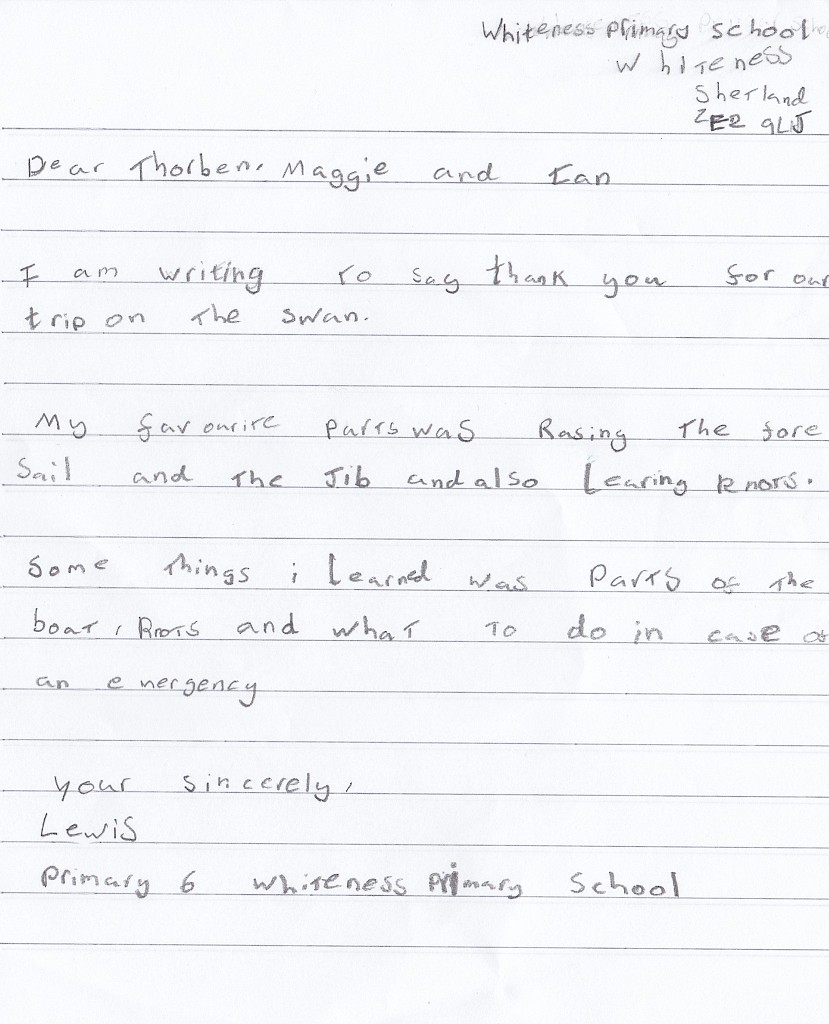 Whiteness Primary School
Whiteness
Shetland
ZE2 9LJ
Dear Thorben, Maggie and Ian
I am writing to say thank you for our
trip on the swan.
My favourite parts was Rasing the fore
Sail and the Jib and also Learing knots.
Some things i Learned was Parts of the
boat, knots and what to do in case of
an emergency
your sincerely,
Lewis
Primary 6 whiteness Primary School